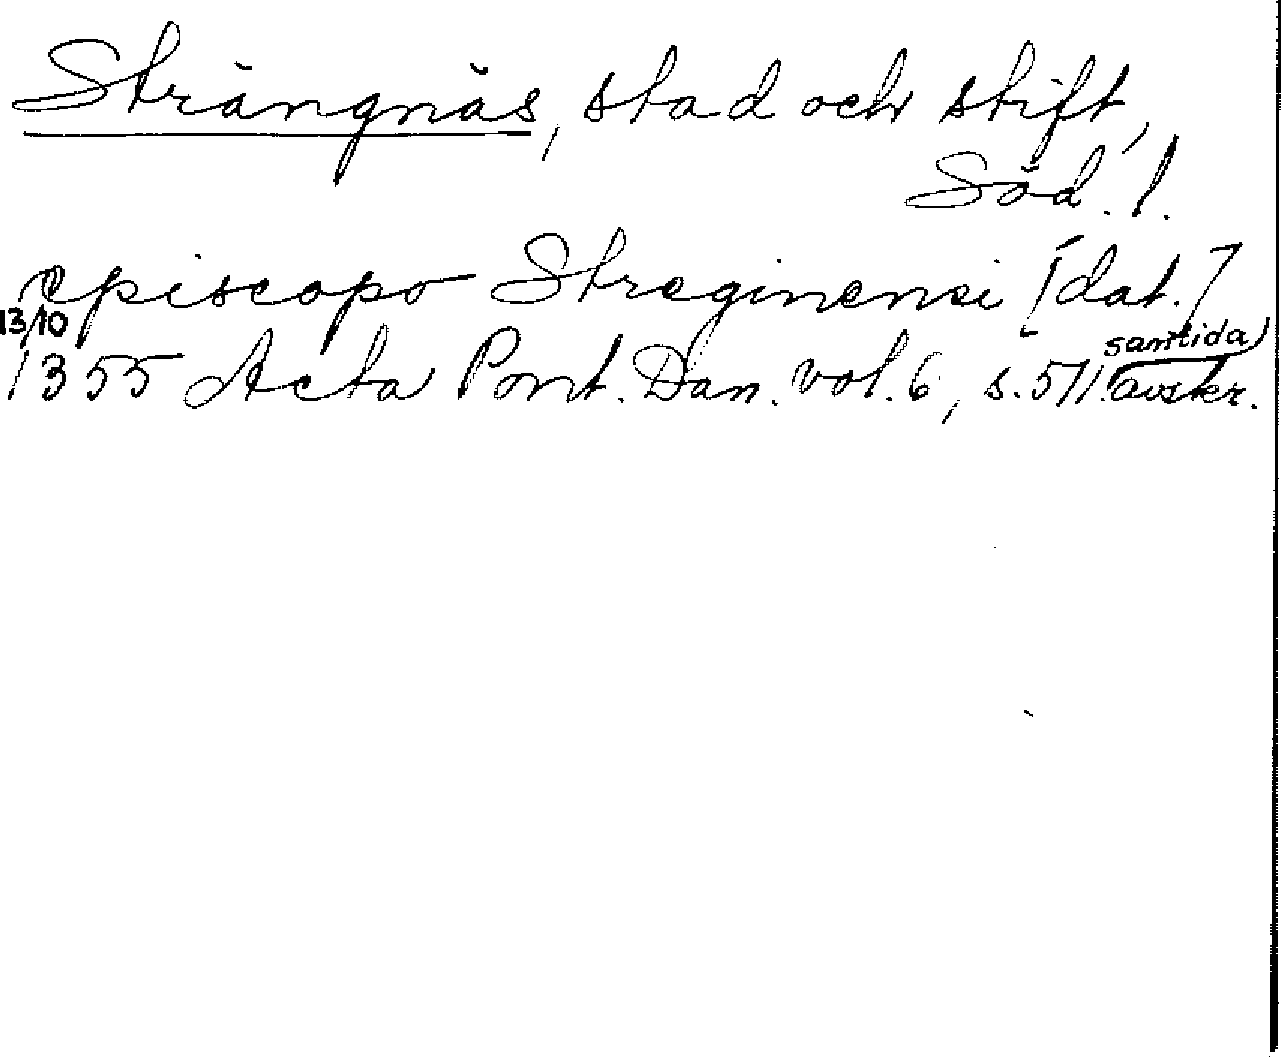 Strängnäs, stad och stift,
Söd. l.
episcopo Streginensi [dat.]
13/10
1355 Acta Pont. Dan. vol. 6, s. 511. samtida
avskr.